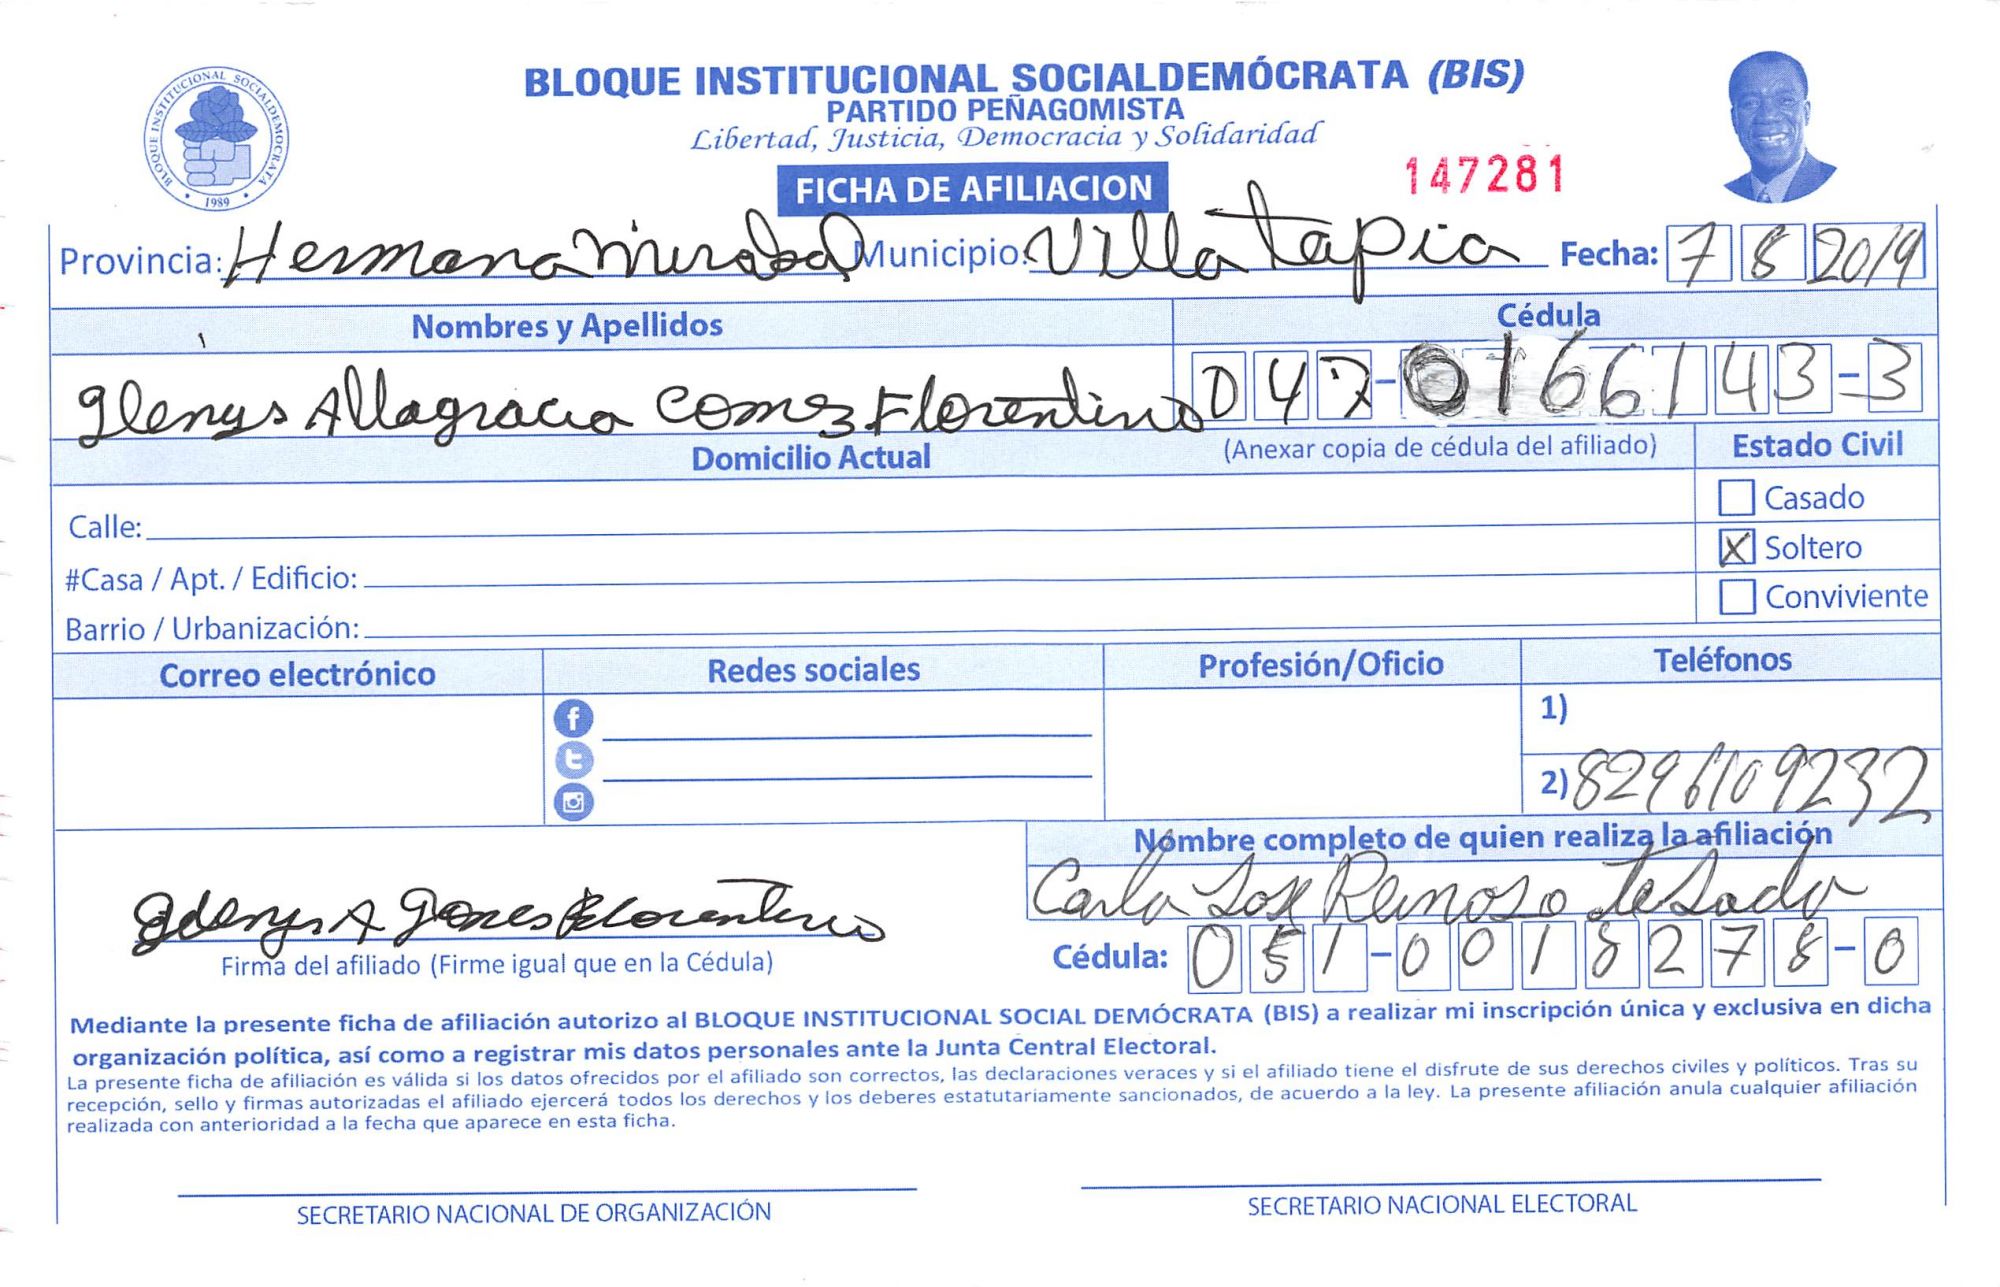 BLOQUE INSTITUCIONAL SOCIALDEMOCRATA
1989
BLOQUE INSTITUCIONAL SOCIALDEMÓCRATA (BIS)
PARTIDO PEÑAGOMISTA
Libertad, Justicia, Democracia y Solidaridad
FICHA DE AFILIACION
147281
Provincia: Hermana Mirabal Municipio: Villa Tapia Fecha: 7 8 2019
Nombres y Apellidos Cédula
Glenys Altagracia Comez Florentino 047-0166143-3
Domicilio Actual (Anexar copia de cédula del afiliado) Estado Civil
Casado
Calle:
X Soltero
#Casa / Apt. / Edificio:
Conviviente
Barrio / Urbanización:
Correo electrónico Redes sociales Profesión/Oficio Teléfonos
1)
2) 8296109232
Nombre completo de quien realiza la afiliación
Carla Reinoso
Glenys A Gomes Florentino
Cédula: 051-0018278-0
Firma del afiliado (Firme igual que en la Cédula)
Mediante la presente ficha de afiliación autorizo al BLOQUE INSTITUCIONAL SOCIAL DEMÓCRATA (BIS) a realizar mi inscripción única y exclusiva en dicha
organización política, así como a registrar mis datos personales ante la Junta Central Electoral.
La presente ficha de afiliación es válida si los datos ofrecidos por el afiliado son correctos, las declaraciones veraces y si el afiliado tiene el disfrute de sus derechos civiles y políticos. Tras su
recepción, sello y firmas autorizadas el afiliado ejercerá todos los derechos y los deberes estatutariamente sancionados, de acuerdo a la ley. La presente afiliación anula cualquier afiliación
realizada con anterioridad a la fecha que aparece en esta ficha.
SECRETARIO NACIONAL DE ORGANIZACIÓN
SECRETARIO NACIONAL ELECTORAL